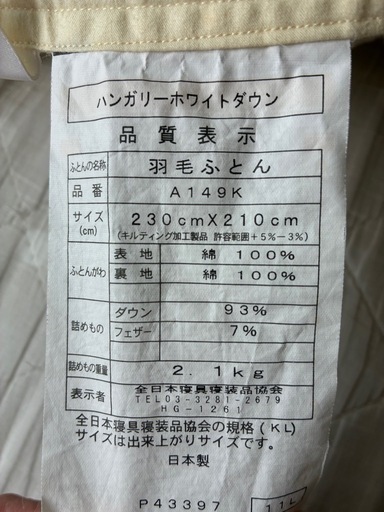 ハンガリーホワイトダウン
品質表示
ふとんの名称 羽毛ふとん
品番 A149K
サイズ(cm) 230cmX210cm
(キルティング加工製品 許容範囲+5%-3%)
ふとんがわ 表地 綿 100%
裏地 綿 100%
詰めもの ダウン 93%
フェザー 7%
詰めもの重量 2.1kg
表示者 全日本寝具寝装品協会
TEL03-3281-2679
HG-1261
全日本寝具寝装品協会の規格(KL)
サイズは出来上がりサイズです。
日本製
P43397
11L